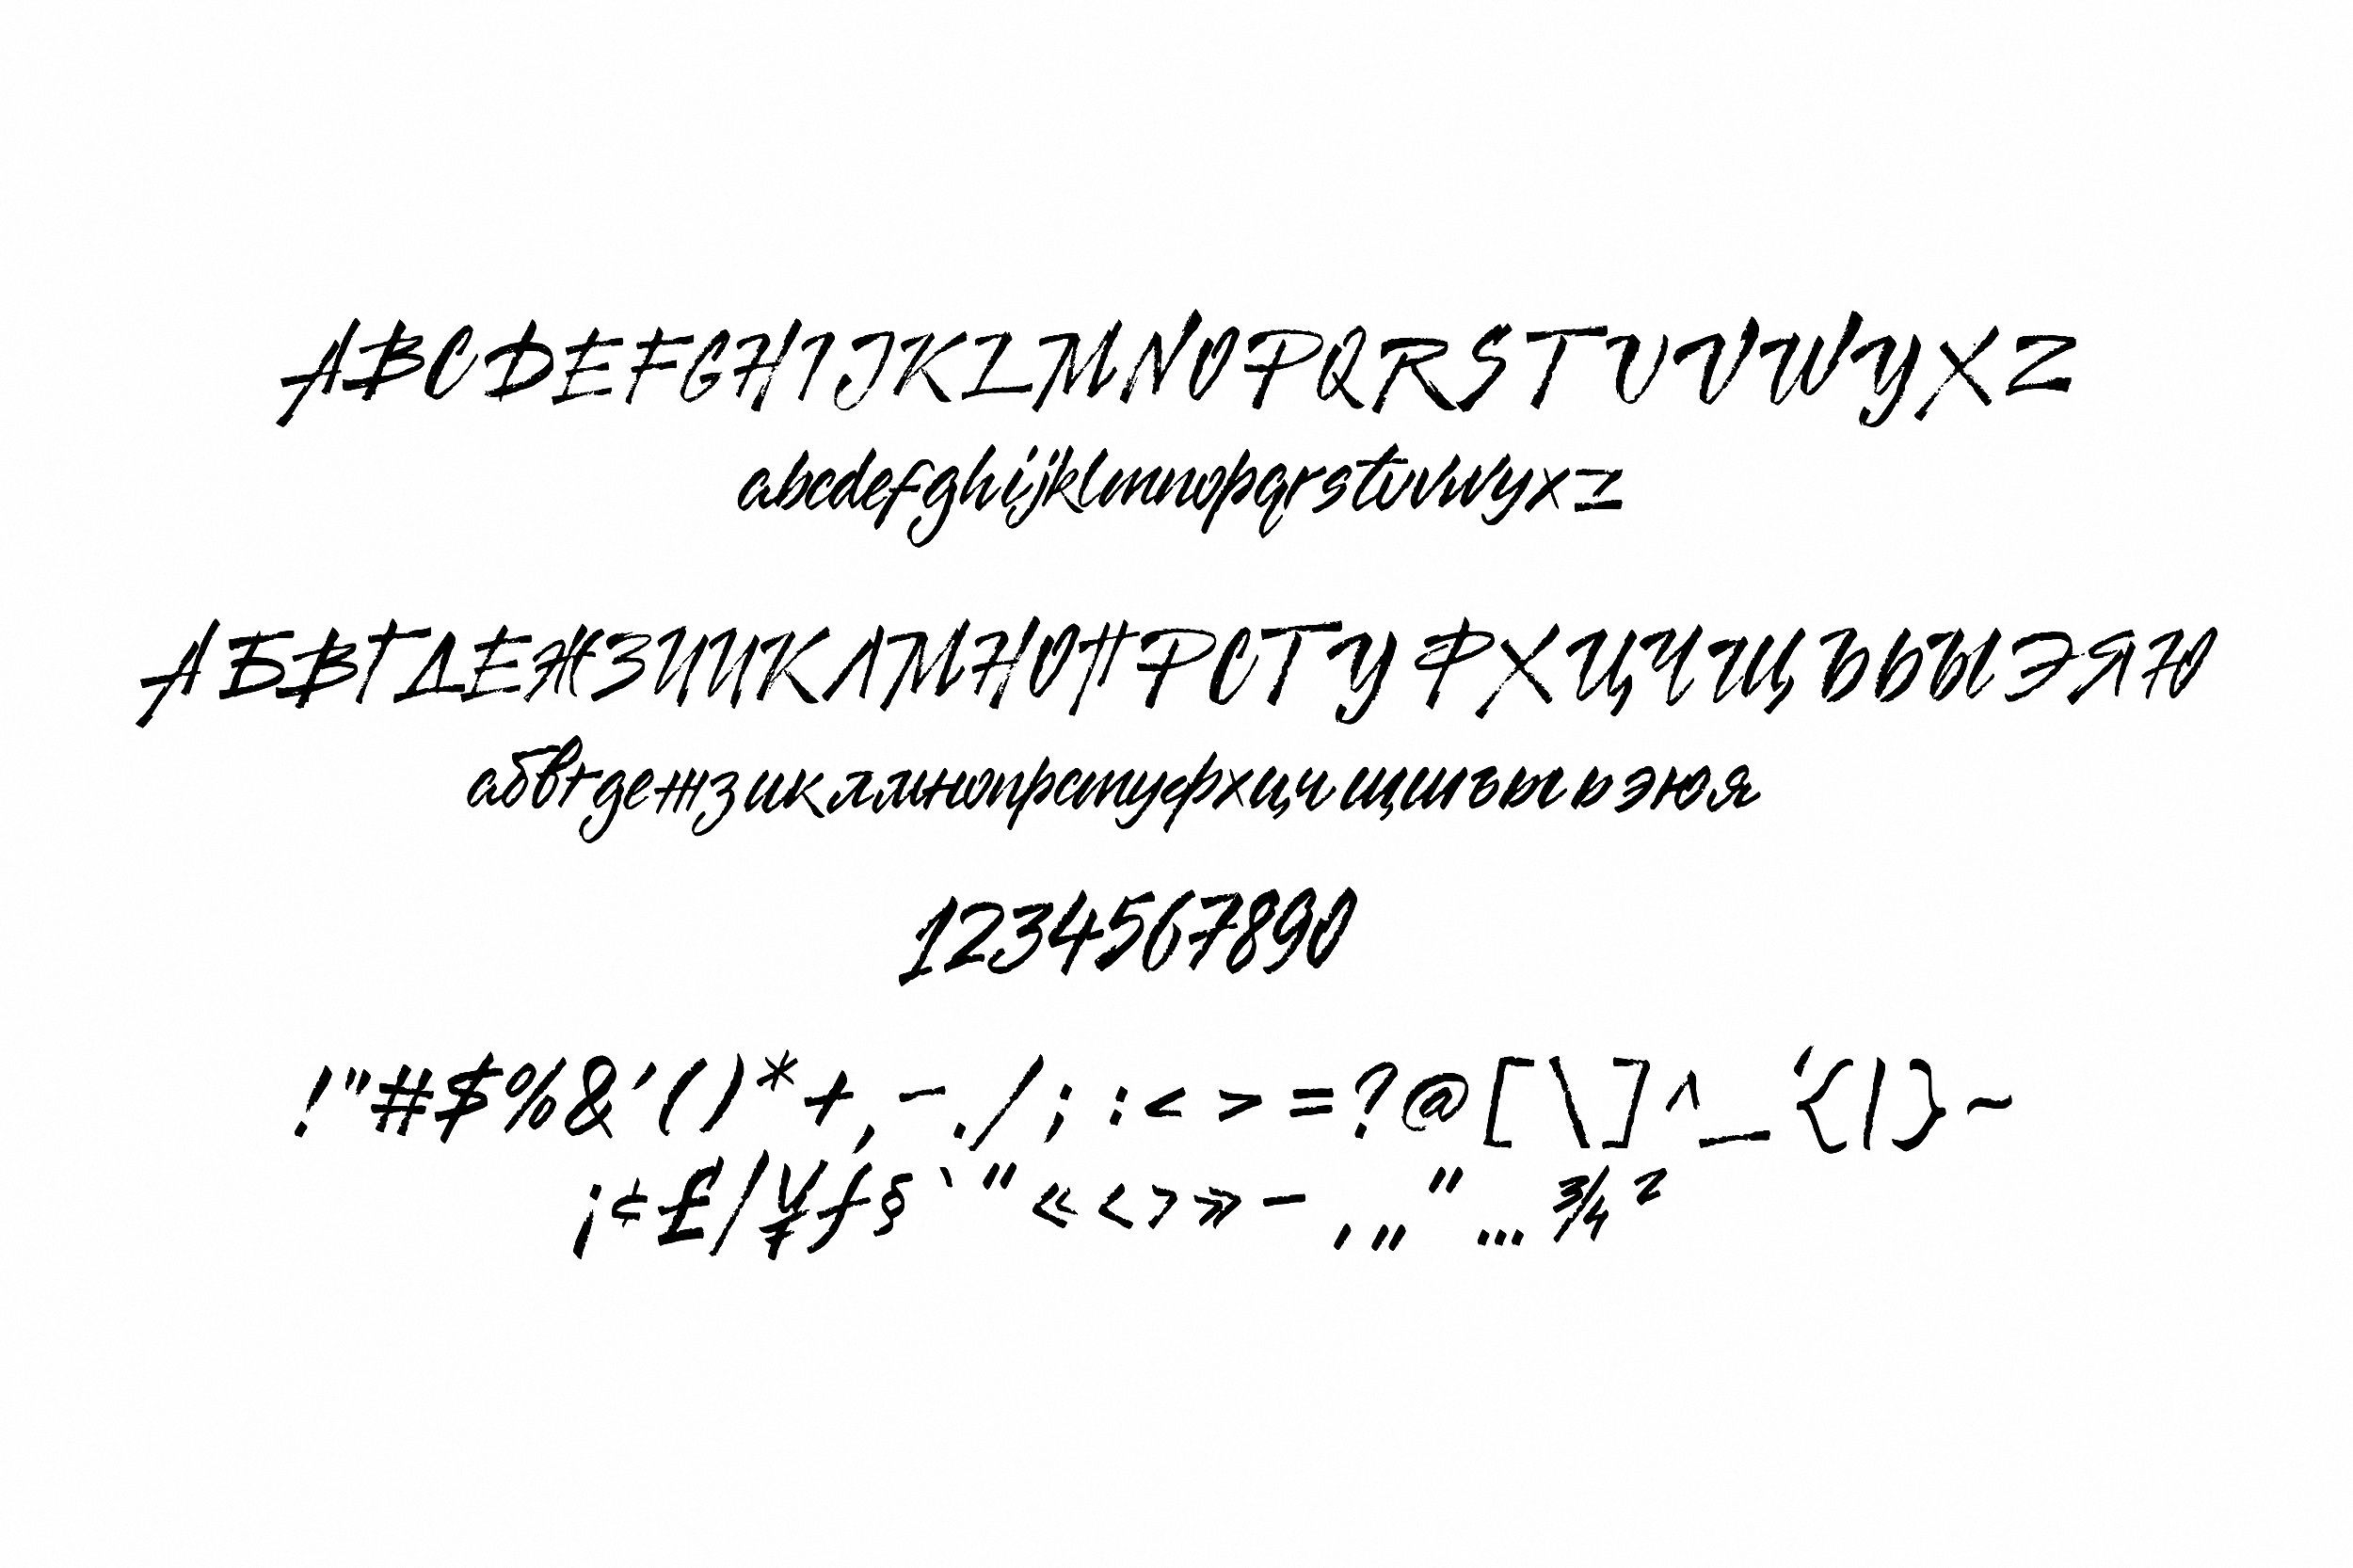 ABCDEFGHIJKLMNOPQRSTUVWYXZ
abcdefghijklmnopqrstuvwyxz
АБВГДЕЖЗИИКЛМНОПРСТУФХЦЧЩЪЬЫЭЯЮ
абвгдежзиклмнопрстуфхцчщшъыьэюя
1234567890
!"#$%&'()*+,-./;:<>=?@[\]^_‘{|}~
¡¢£/¥ƒ§`"«‹›»–‚„"…¾²